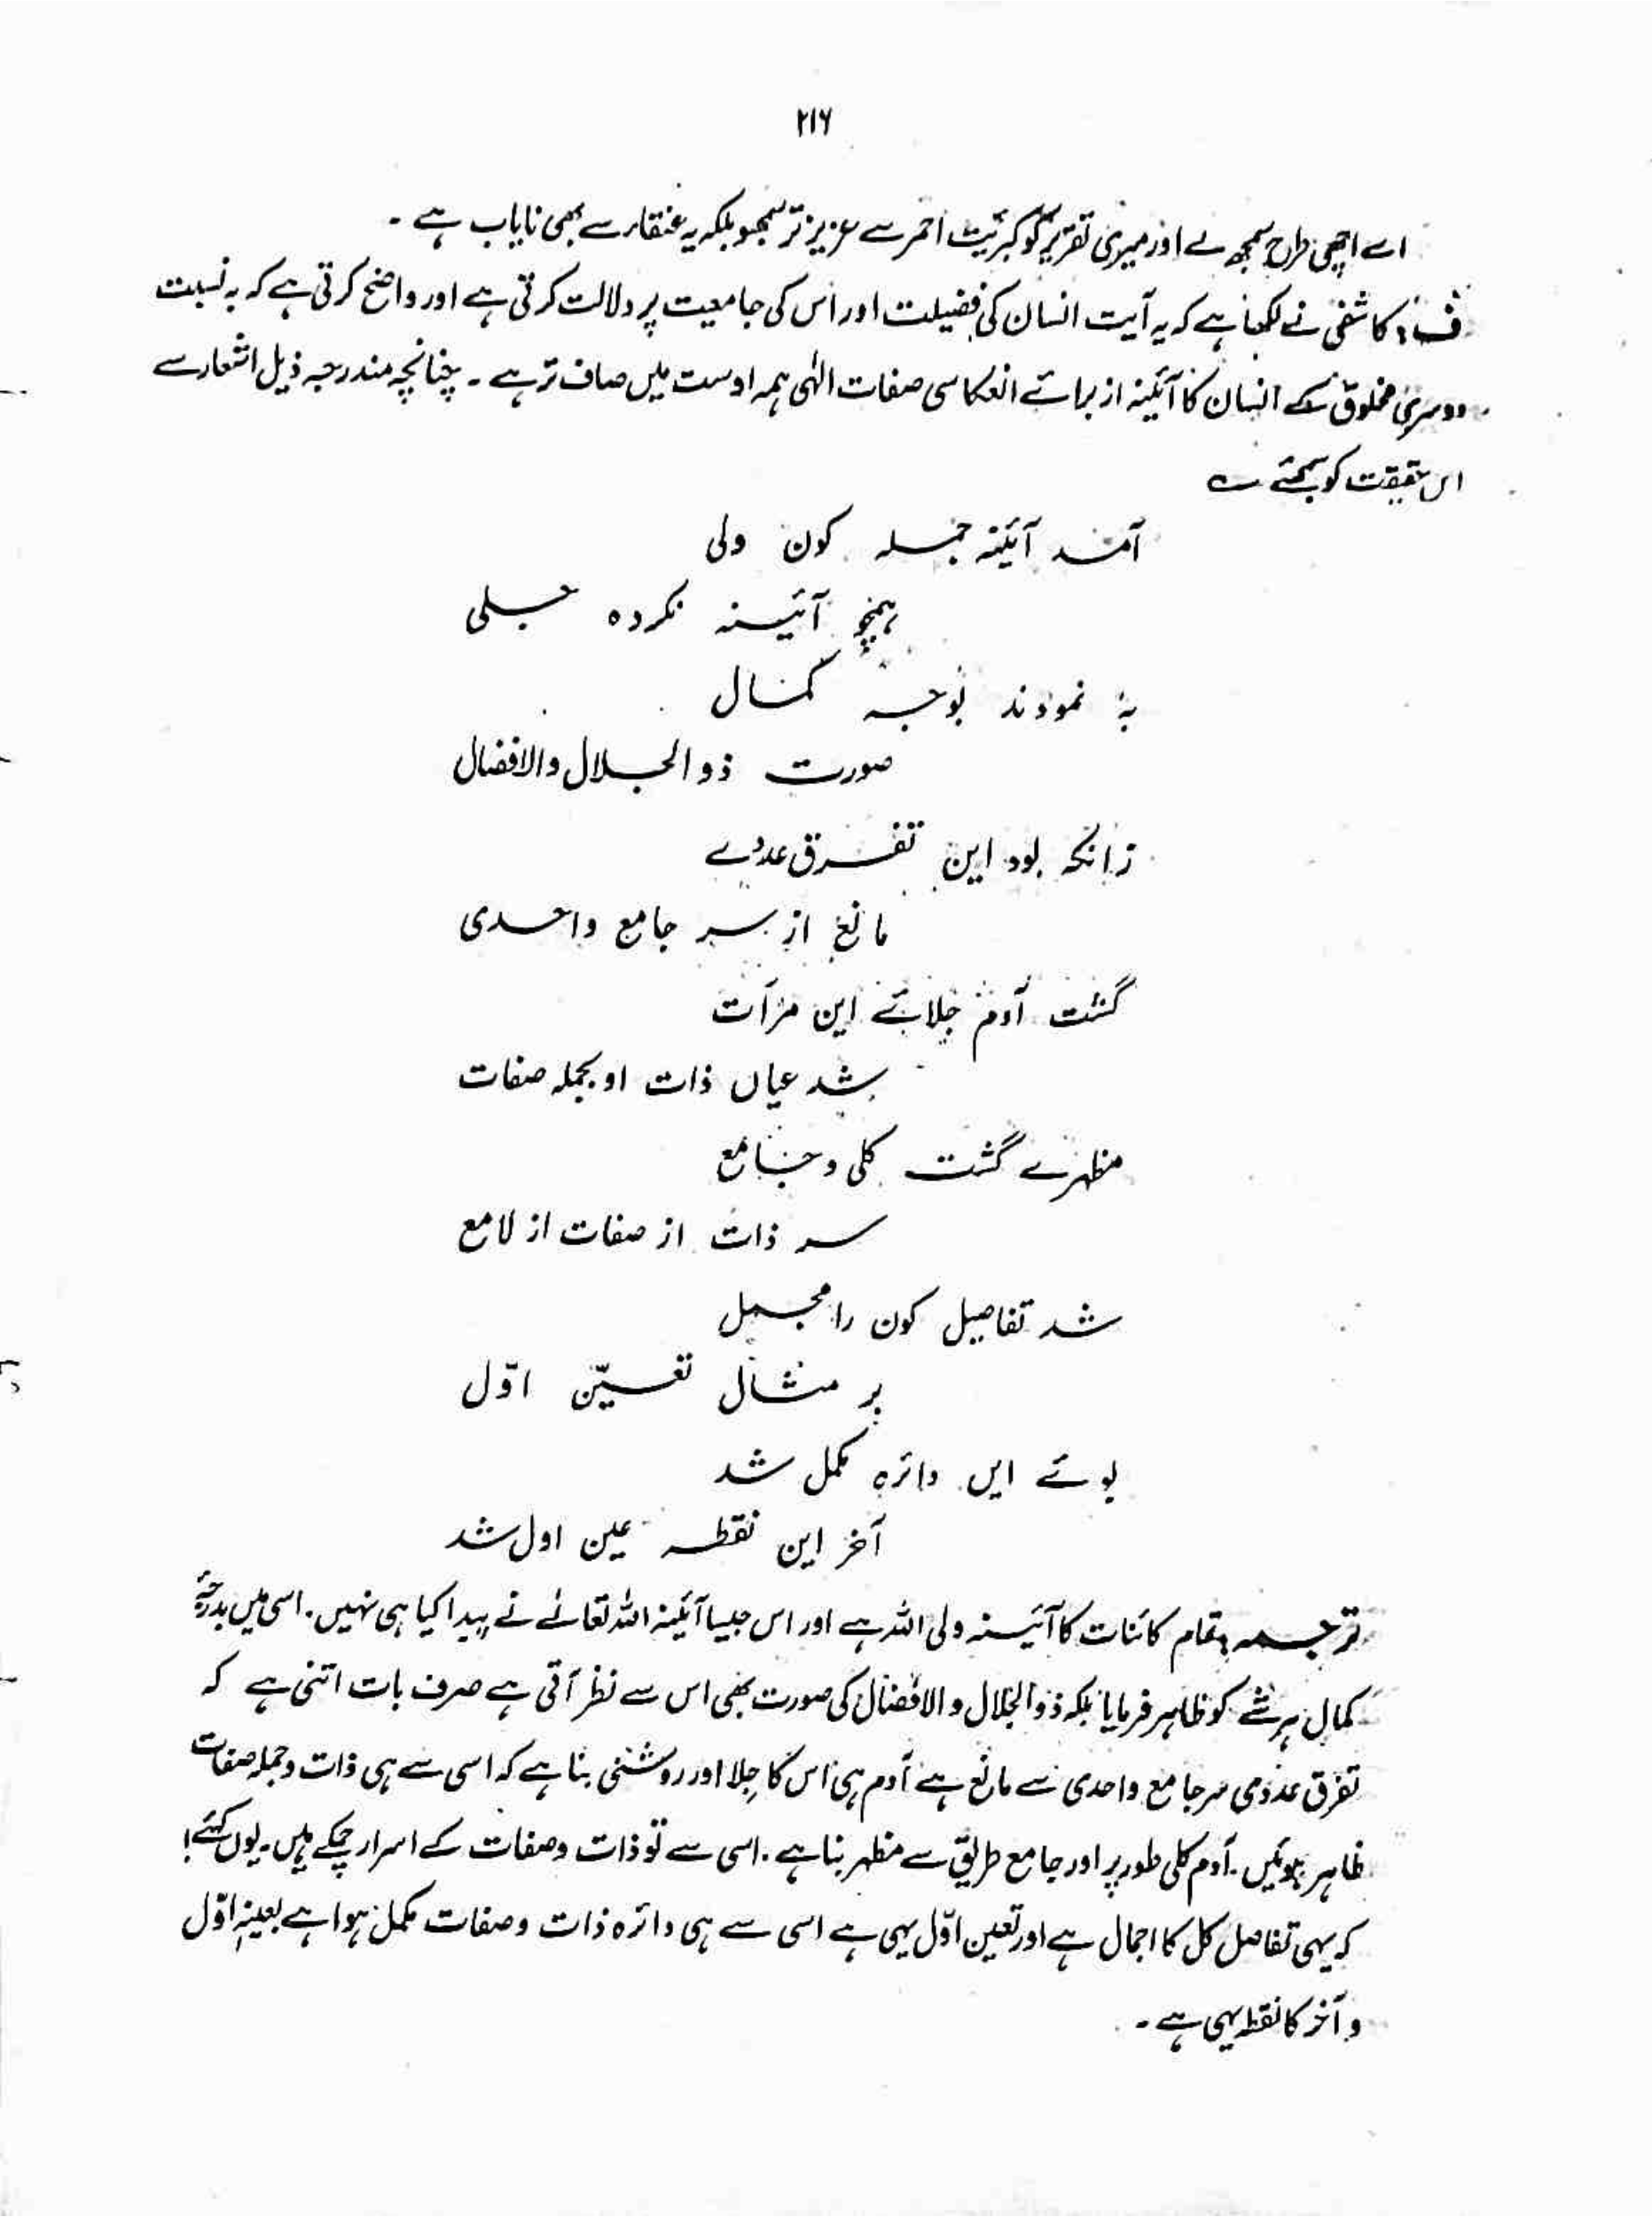 ۲۱۶
اسے اچھی طرح سمجھ لے اور میری تقریر کو کبریت احمر سے عزیز تر سمجھو بلکہ یہ عنقاء سے بھی نایاب ہے ۔
ف : کاشفی نے لکھا ہے کہ یہ آیت انسان کی فضیلت اور اس کی جامعیت پر دلالت کرتی ہے اور واضح کرتی ہے کہ بہ نسبت
دوسری مخلوق کے انسان کا آئینہ از برائے انعکاسی صفات الٰہی ہمہ اوست میں صاف تر ہے ۔ چنانچہ مندرجہ ذیل اشعار سے
اس حقیقت کو سمجھئے ؎
آمد آئینہ جملہ کون ولی
ہمچو آئینہ نکردہ جلی
بہ نمودند بوجہ کمال
صورت ذوالجلال والافضال
زانکہ بود این تفرق عددے
مانع از سر جامع واحدی
گشت آدم جلائے این مرآت
شد عیاں ذات او بجملہ صفات
مظہرے گشت کلی و جامع
سر ذات از صفات از لامع
شد تفاصیل کون را مجمل
بر مثال تعیّن اوّل
بوئے ایں دائرہ مکمل شد
آخر این نقطہ عین اول شد
ترجمہ : تمام کائنات کا آئینہ ولی اللہ ہے اور اس جیسا آئینہ اللہ تعالےٰ نے پیدا کیا ہی نہیں ۔ اسی میں بدرجۂ
کمال ہر شے کو ظاہر فرمایا بلکہ ذوالجلال والافضال کی صورت بھی اس سے نظر آتی ہے صرف بات اتنی ہے کہ
تفرق عددی سر جامع واحدی سے مانع ہے آدم ہی اس کا جِلا اور روشنی بنا ہے کہ اسی سے ہی ذات و جملہ صفات
ظاہر ہوئیں ۔ آدم کلی طور پر اور جامع طریق سے مظہر بنا ہے ۔ اسی سے تو ذات و صفات کے اسرار چمکے ہیں ۔ یوں کہئے !
کہ یہی تفاصل کل کا اجمال ہے اور تعین اوّل یہی ہے اسی سے ہی دائرہ ذات و صفات مکمل ہوا ہے بعینہٖ اوّل
و آخر کا نقطہ یہی ہے ۔